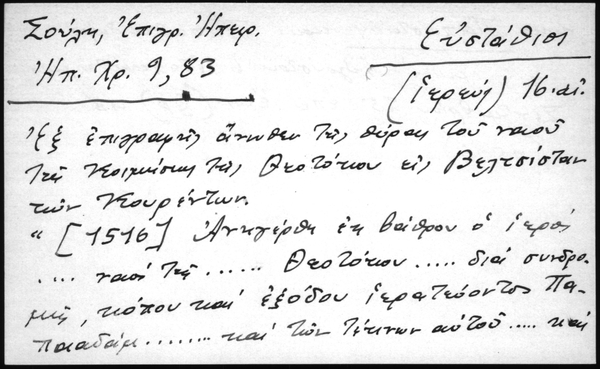 Σούλη, Ἐπιγρ. Ἠπειρ.
Ἠπ. Χρ. 9, 83
Εὐστάθιος
(ἱερεύς) 16. αἰ.
Ἐξ ἐπιγραφῆς ἄνωθεν τῆς θύρας τοῦ ναοῦ
τῆς Κοιμήσεως τῆς Θεοτόκου εἰς Βελτσίσταν
τῶν Κουρέντων.
" [1516] Ἀνηγέρθη ἐκ βάθρου ὁ ἱερός
.... ναός τῆς ...... Θεοτόκου ..... διά συνδρο-
μῆς, κόπου καί ἐξόδου ἱερατεύοντος Πα-
πααδάμ ........ καί τῶν τέκνων αὐτοῦ ..... καί